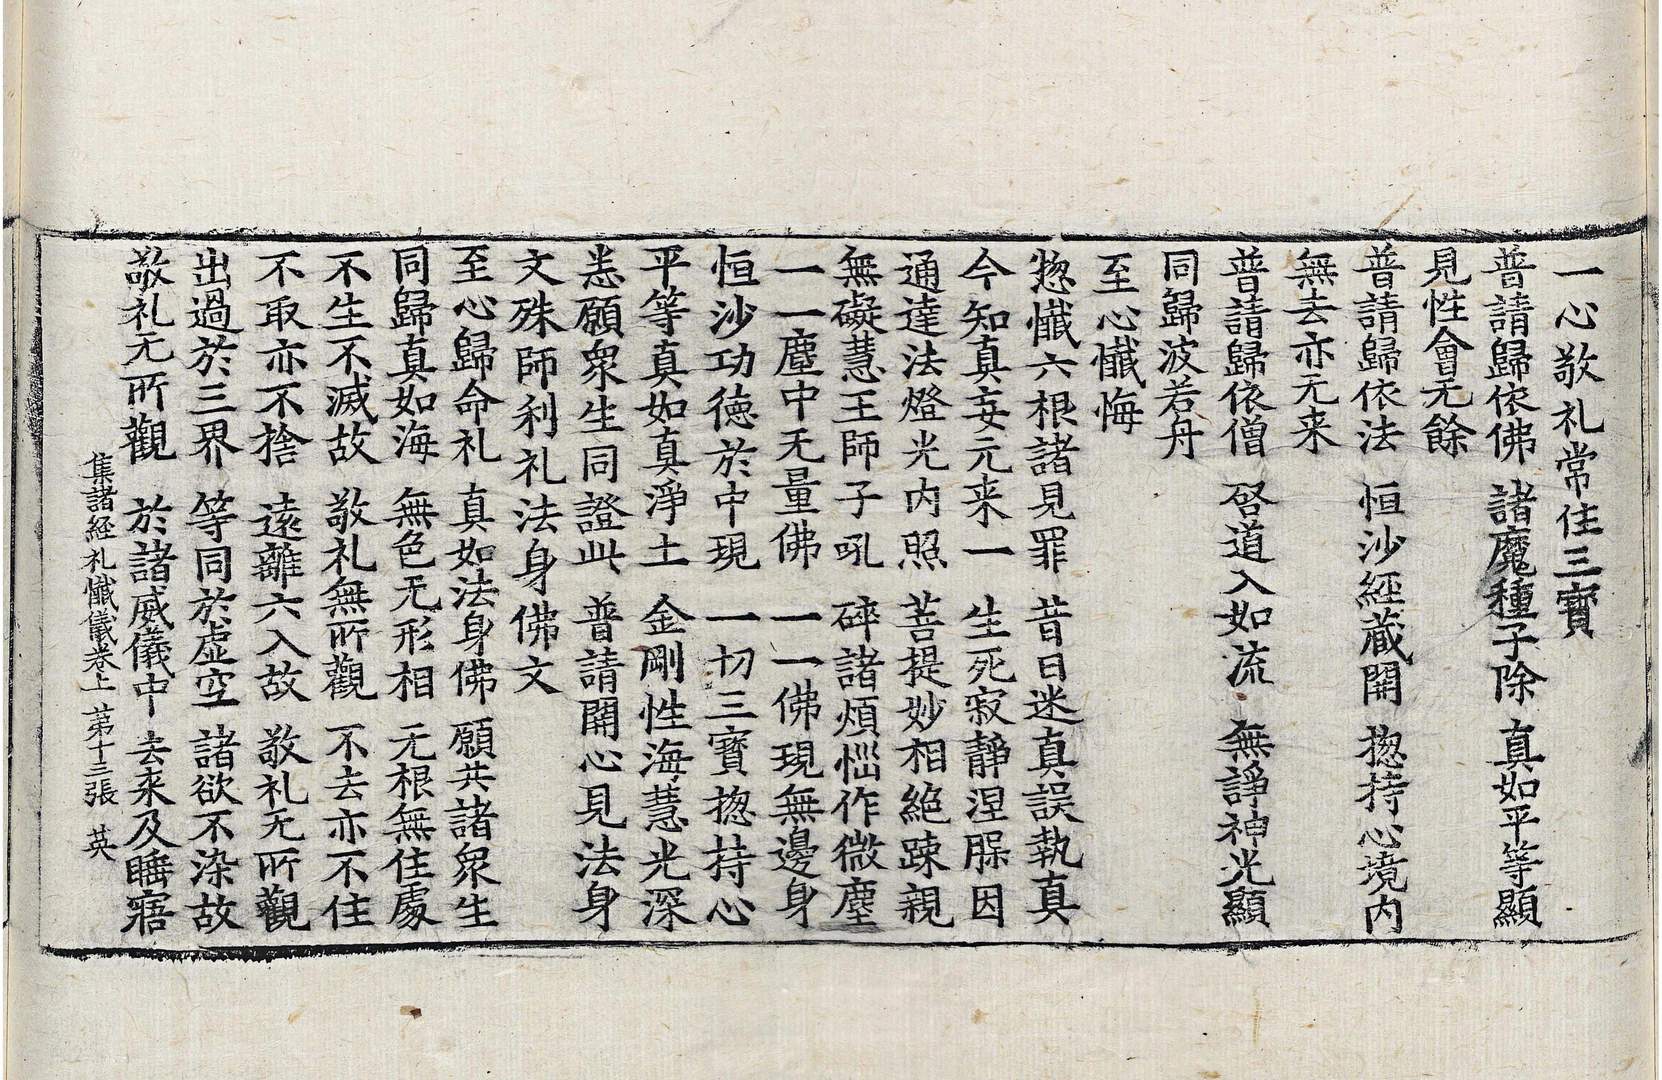 一心敬礼常住三寶
普請歸依佛　諸魔種子除　真如平等顯
見性會无餘
普請歸依法　恒沙經蔵開　揔持心境内
無去亦无来
普請歸依僧　啓道入如流　無諍神光顯
同歸波若舟
至心懺悔
惣懺六根諸見罪　昔日迷真誤執真
今知真妄元来一　生死寂靜涅脲因
通達法燈光内照　菩提妙相絶踈親
無礙慧王師子吼　碎諸煩惱作微塵
一一塵中无量佛　一一佛現無邊身
恒沙功德於中現　一切三寶揔持心
平等真如真淨土　金剛性海慧光深
悉願衆生同證此　普請開心見法身
文殊師利礼法身佛文
至心歸命礼　真如法身佛　願共諸衆生
同歸真如海　無色无形相　无根無住處
不生不滅故　敬礼無所觀　不去亦不住
不取亦不捨　遠離六入故　敬礼无所觀
出過於三界　等同於虛空　諸欲不染故
敬礼无所觀　於諸威儀中　去来及睡寤
集諸經礼懺儀卷上　第十三張　英